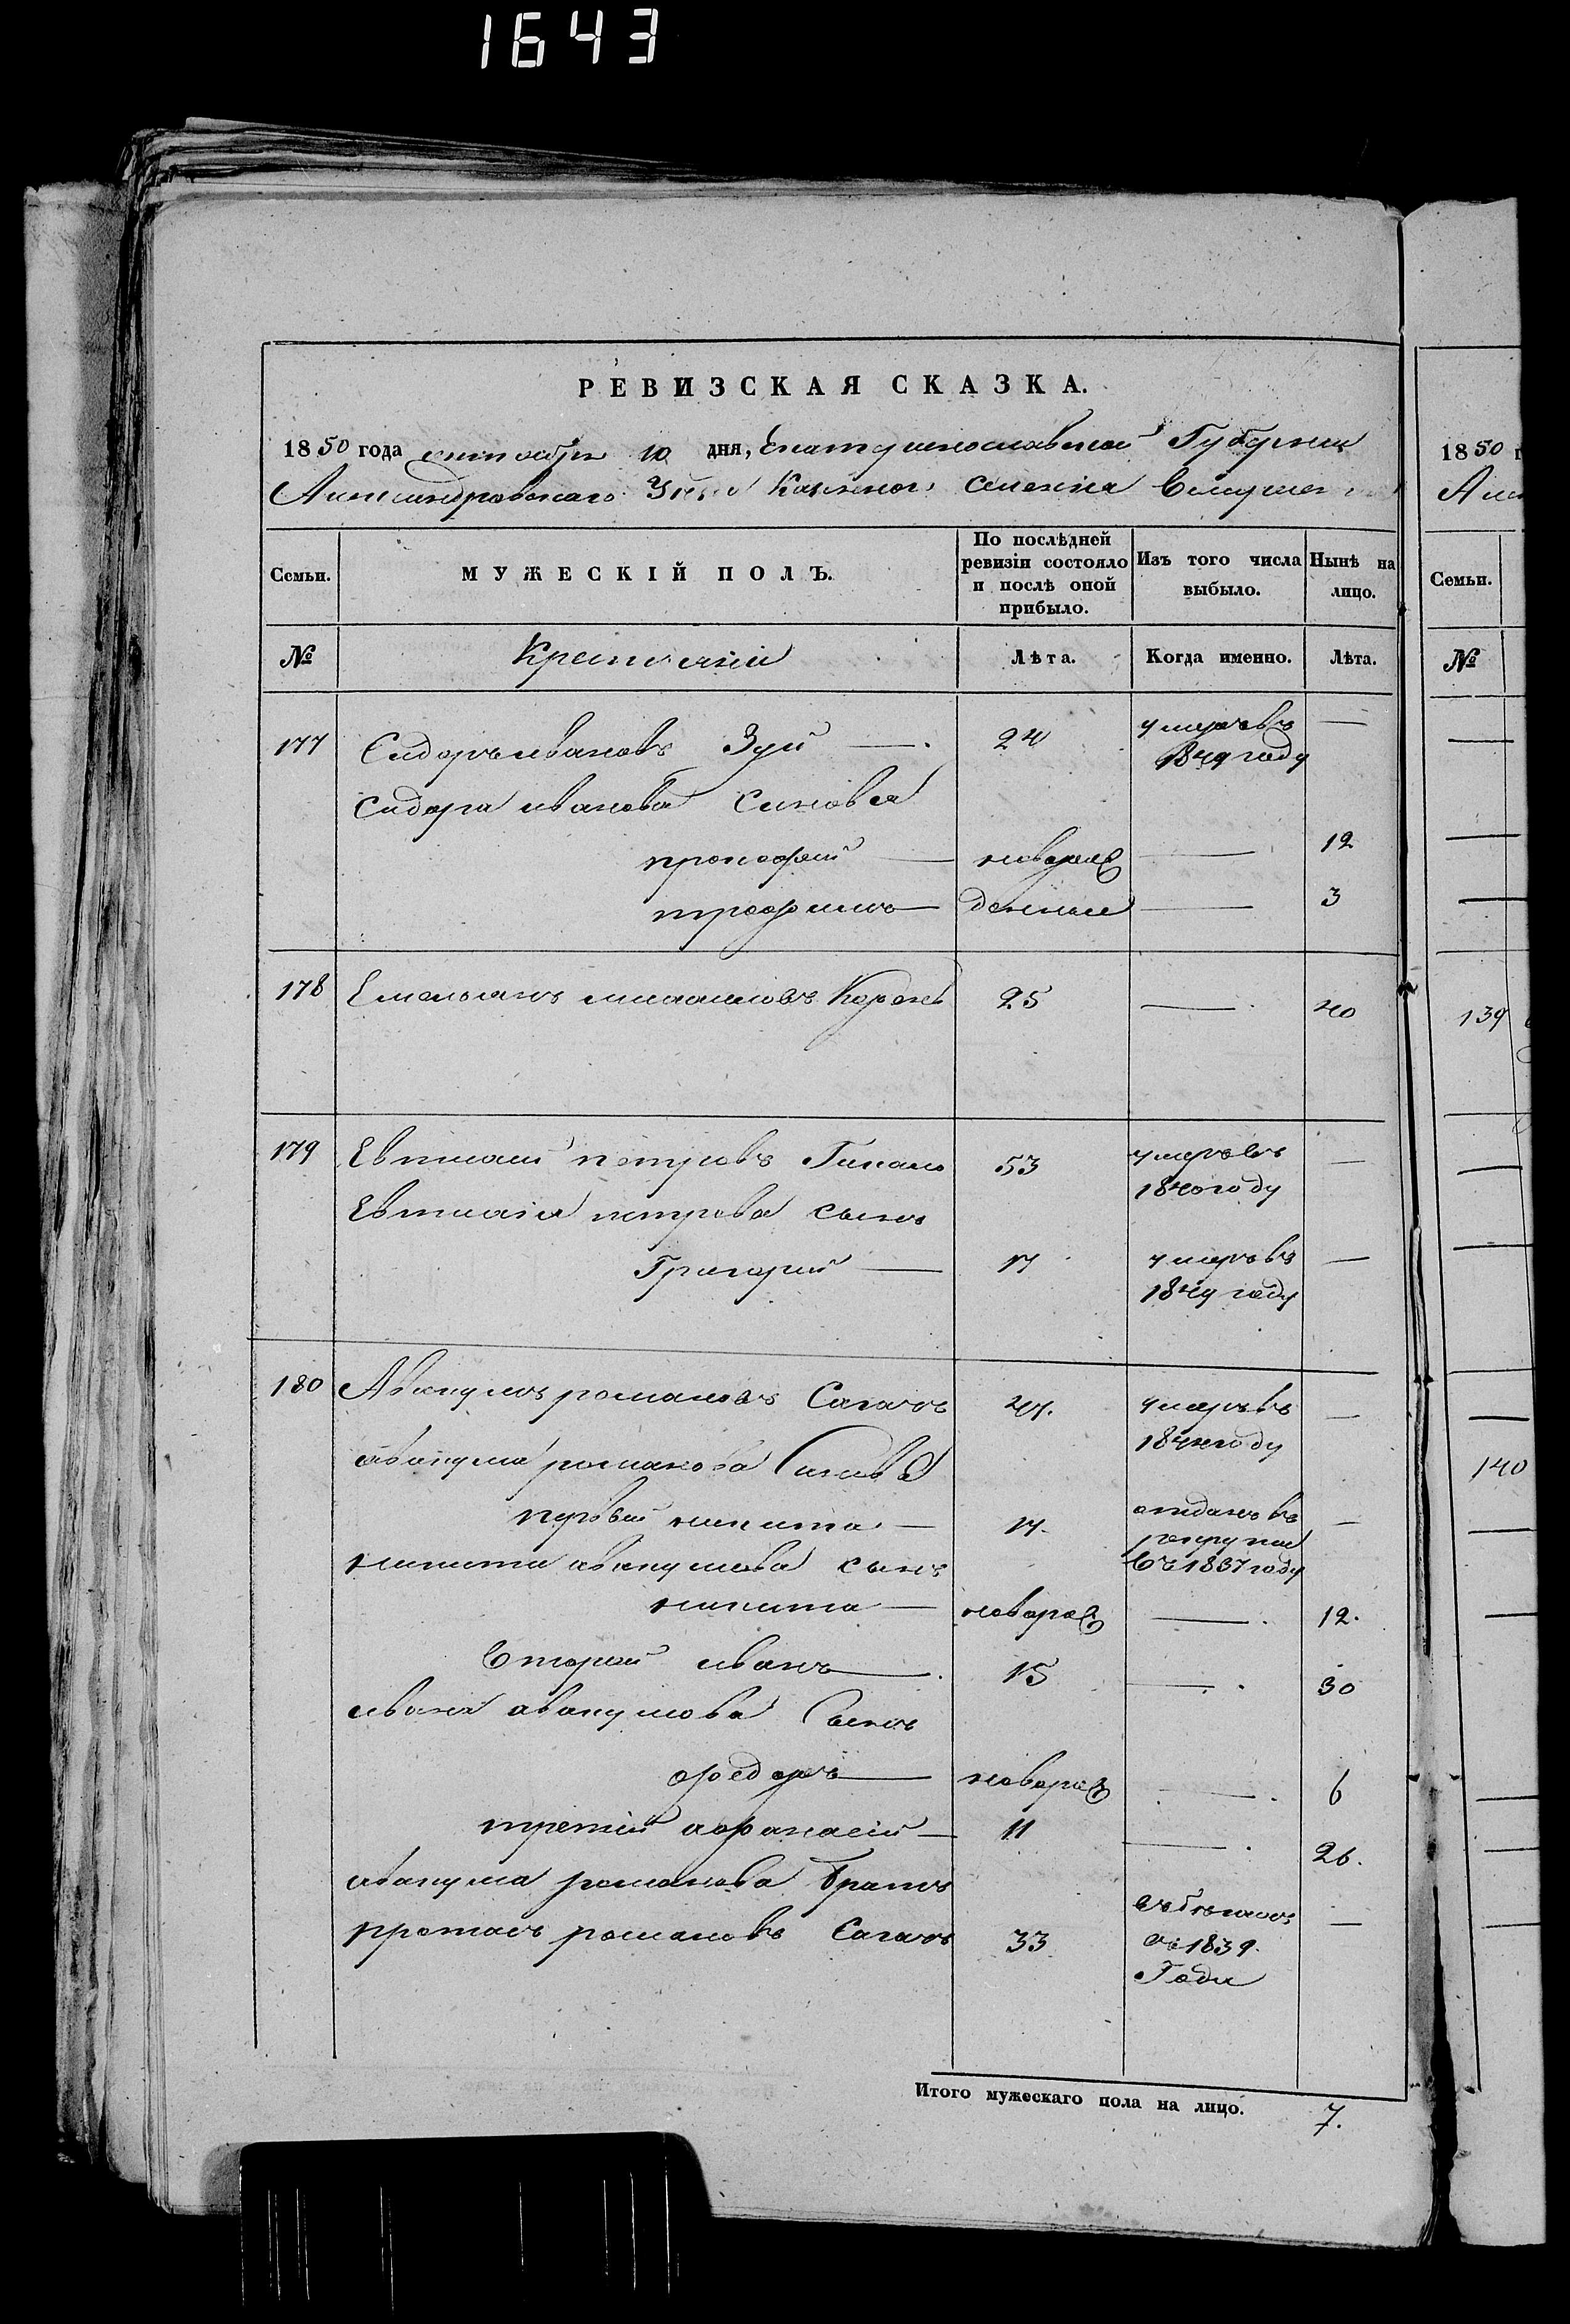 1643
РЕВИЗСКАЯ СКАЗКА.
1850 года октября 10 дня, Екатеринославской Губернии
Александровскаго Уезда Казенного селения
Семьи.
МУЖЕСКІЙ ПОЛЪ.
По послѣдней ревизіи состояло и послѣ оной прибыло.
Изъ того числа выбыло.
Нынѣ на лицо.
№
Крестьяне
Лѣта.
Когда именно.
Лѣта.
177 Сидоръ ивановъ Зуй — 24 умеръ въ 1849 году —
Сидора иванова Синовья
прокофий — новорож — 12
трофимъ — денные — 3
178 Емельянъ Корень 25 — 40
179 Евтихий петровъ 53 умеръ въ 1840 году —
Евтихия петрова сынъ
Григорий — 17 умеръ въ 1849 году —
180 Авакумъ романовъ Сагачъ 47. умеръ въ 184 году —
авакума романова Синовья
первый никита — 17. отданъ въ рекруты въ 1837 году —
никиты авакумова сынъ
никита — новорож — 12.
Вторый иванъ — 15 — 30
ивана авакумова Сынъ
федоръ — новорож — 6
третий афанасий — 11 — 26.
авакума романова братъ
протасъ романовъ Сагачъ 33 въ бегахъ съ 1839. Года —
Итого мужескаго пола на лицо. 7.
1850 г
Але
Семьи.
№
139
140